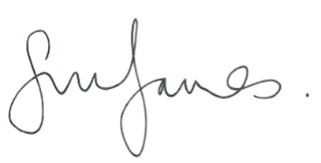 Sue James.